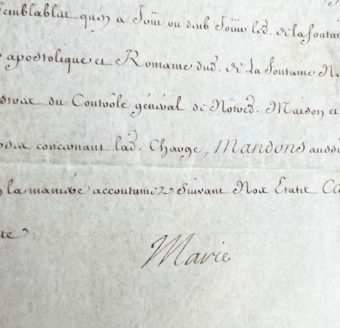 semblablet quen a Jouy ou deub Jouir led. de la fontai
apostolique et Romaine dud. de la fontaine No
du Contrôle général de Notred. Maison et
concernant lad. Charge, Mandons aussi
la maniere accoutumez Suivant Nos Etatz
Marie